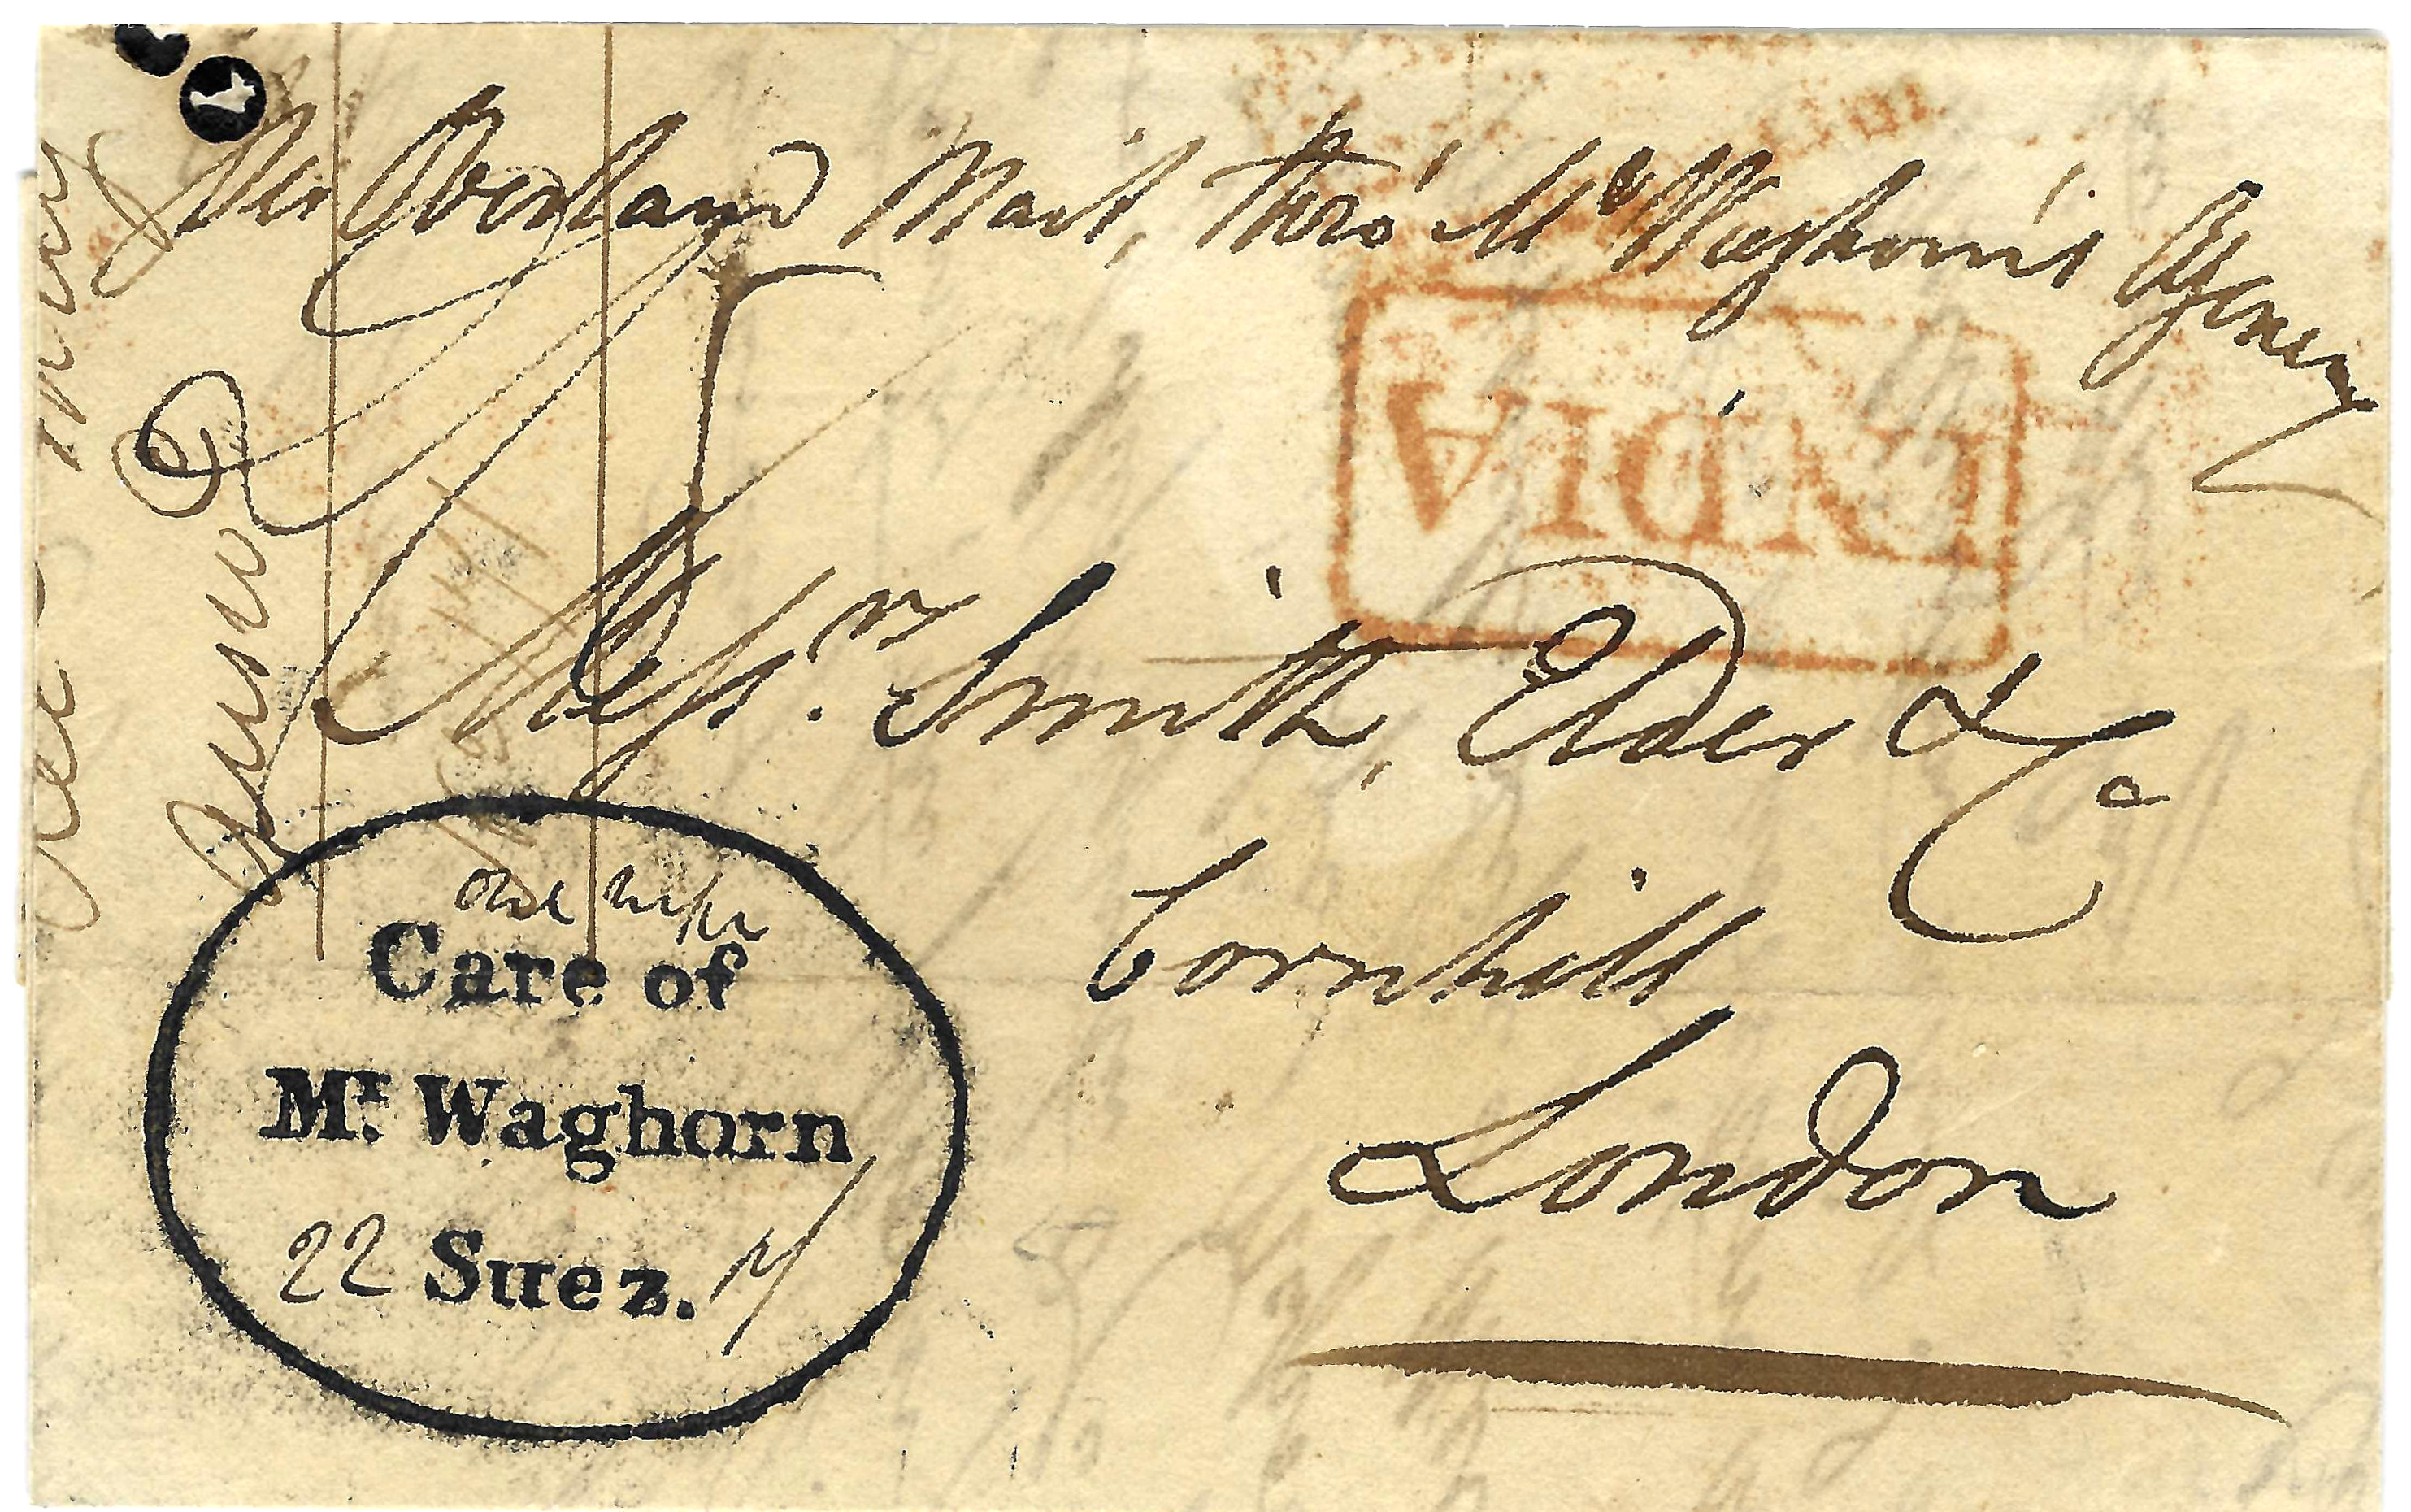 Per Overland Mail, thro' Mr Waghorn's Agency
INDIA
Messrs. Smith, Elder & Co
Cornhill
London
Care of
Mr. Waghorn
22 Suez.